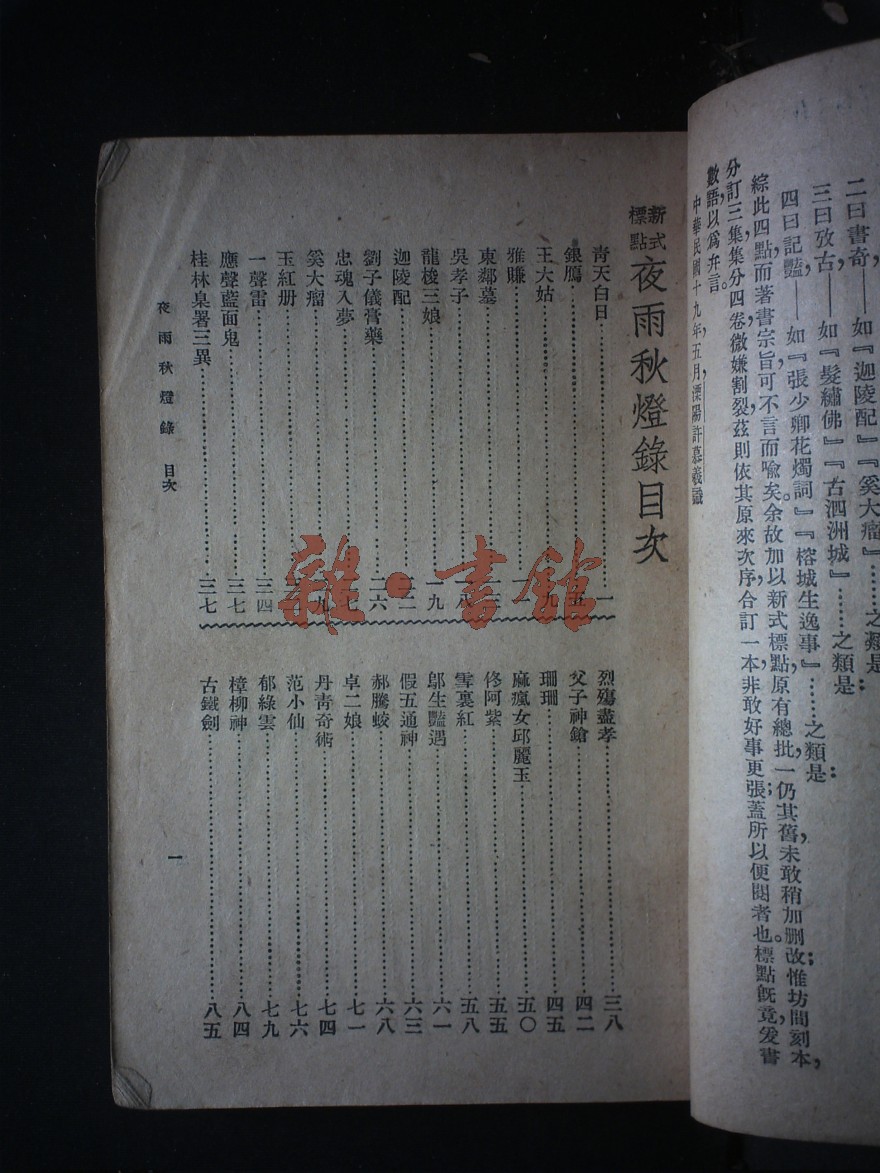 二曰書奇——如『迦陵配』『奚大瘤』……之類是：
三曰攷古——如『髮繡佛』『古泗洲城』……之類是
四曰記豔——如『張少卿花燭詞』『榕城生逸事』……之類是；
綜此四點，而著書宗旨可不言而喻矣。余故加以新式標點，原有總批，一仍其舊，未敢稍加删改；惟坊間刻本，
分訂三集，集分四卷，微嫌割裂，茲則依其原來次序，合訂一本，非敢好事更張，蓋所以便閱者也。標點既竟，爰書
數語，以爲弁言。
中華民國十九年，五月，溧陽許慕羲識
新式標點夜雨秋燈錄目次
青天白日……一
銀鴈……五
王大姑……九
雅賺……
東鄰墓……
吳孝子……八
龍梭三娘……一九
迦陵配……二二
劉子儀膏藥……二六
忠魂入夢……七
奚大瘤……九
玉紅册……
一聲雷……三四
應聲藍面鬼……三七
桂林臬署三異……三七
烈殤盡孝……三八
父子神鎗……四二
珊珊……四五
麻瘋女邱麗玉……五〇
佟阿紫……五五
雪裏紅……五八
鄔生豔遇……六一
假五通神……六三
郝騰蛟……六八
卓二娘……七一
丹靑奇術……七四
范小仙……七六
郁綠雲……七九
樟柳神……八四
古鐵劍……八五
夜雨秋燈錄 目次
一
雜·書館